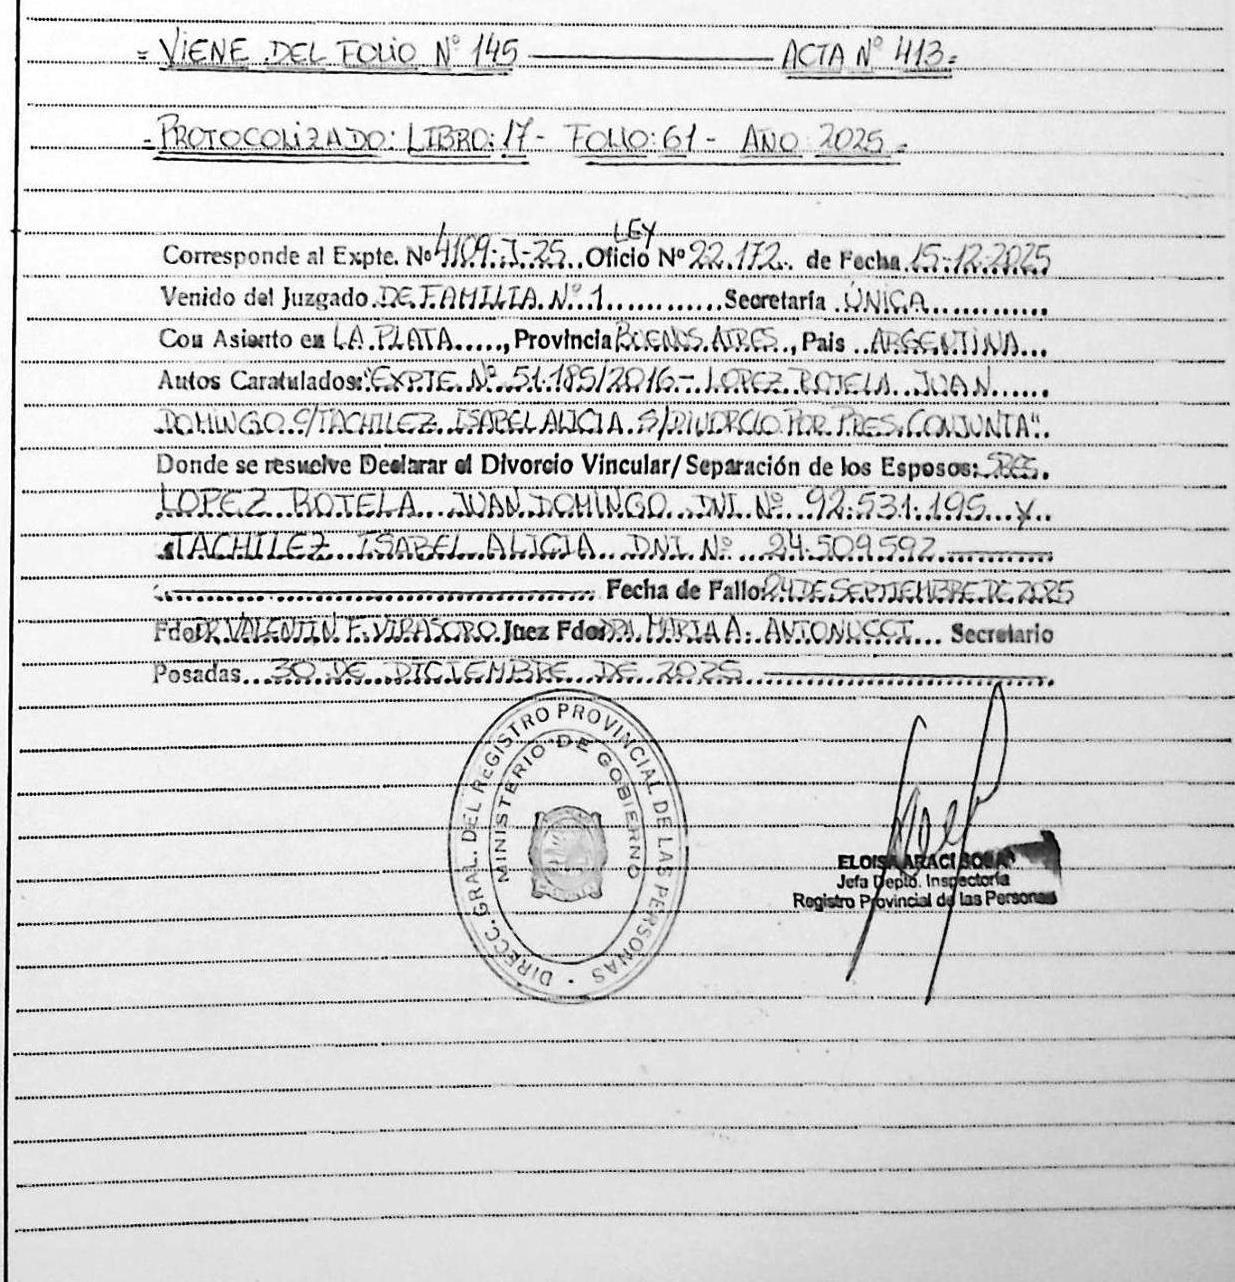 = VIENE DEL FOLIO N° 145 ——— ACTA N° 413=
- PROTOCOLIZADO: LIBRO: 17 - FOLIO: 61 - AÑO 2025 -
LEY
Corresponde al Expte. Nº 4109-J-25 Oficio Nº 22.172 de Fecha 15-12-2025
Venido del Juzgado DE FAMILIA Nº 1 Secretaría ÚNICA
Con Asiento en LA PLATA, Provincia BUENOS AIRES, Pais ARGENTINA
Autos Caratulados: "EXPTE. Nº 51.185/2016 - LOPEZ ROTELA JUAN
DOMINGO C/TACHILEZ ISABEL ALICIA S/DIVORCIO POR PRES. CONJUNTA"
Donde se resuelve Declarar el Divorcio Vincular/Separación de los Esposos: SRES.
LOPEZ ROTELA JUAN DOMINGO DNI Nº 92.531.195 y
TACHILEZ ISABEL ALICIA DNI. Nº 24.509.592
Fecha de Fallo: 24 DE SEPTIEMBRE DE 2025
Fdo DR. VALENTIN F. VIRASORO Juez Fdo: DRA. MARIA A. ANTONUCCI Secretario
Posadas 30 DE DICIEMBRE DE 2025
DIRECC. GRAL. DEL REGISTRO PROVINCIAL DE LAS PERSONAS
MINISTERIO DE GOBIERNO
ELOISA ARACI SOSA
Jefa Depto. Inspectoría
Registro Provincial de las Personas